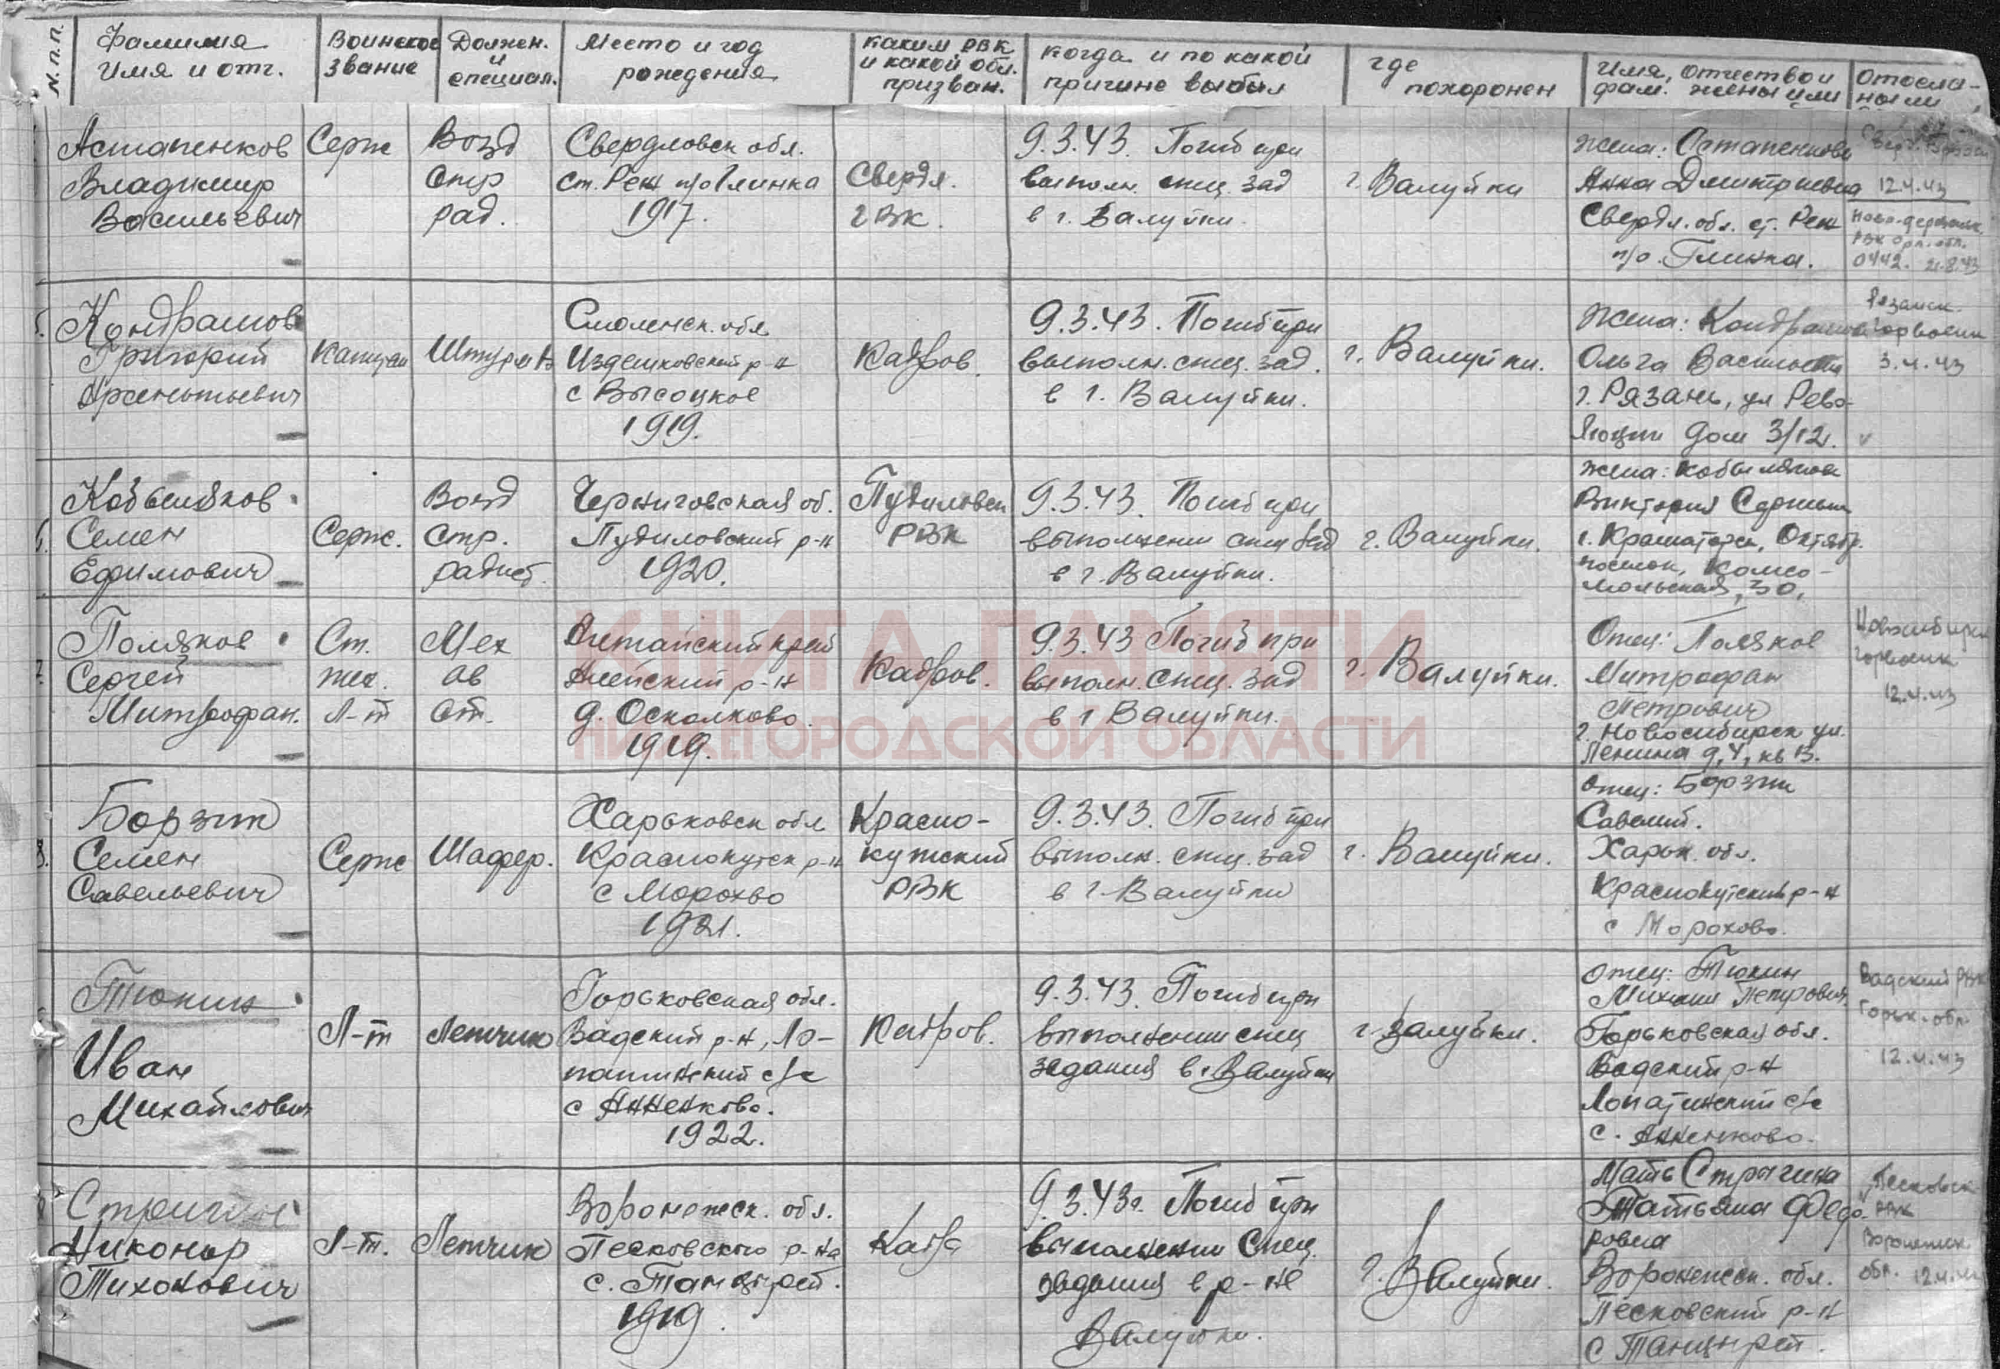 N. п. п.
Фамилия
Имя и отч.
Воинское
звание
Должен.
и
специал.
Место и год
рождения
каким РВК
и какой обл.
призван.
когда и по какой
причине выбыл
где
похоронен
Имя, отчество и
фам. жены или
Отосла-
ны ли
Астапенков
Владимир
Васильевич
Серж
Возд
стр
рад.
Свердловск обл.
ст. Реж п/о Глинка
1917.
Свердл.
ГВК.
9.3.43. Погиб при
выполн. спец. зад
в г. Валуйки.
г. Валуйки
жена: Остапенкова
Анна Дмитриевна
Свердл. обл. ст. Реж
п/о. Глинка.
12.4.43
РВК орл. обл.
0442. 21.8.43
5.
Кондрашов
Григорий
Арсентьевич
капитан
Штурман
Смоленск. обл
Издешковский р-н
с Высоцкое
1919.
Кадров.
9.3.43. Погиб при
выполн. спец. зад.
в г. Валуйки.
г. Валуйки.
жена: Кондрашова
Ольга Васильевна
г. Рязань, ул Рево-
люции дом 3/12.
Рязанск.
Горвоенк
3.4.43
6.
Кобыляков
Семен
Ефимович
Серж.
Возд
Стр.
радист.
Черниговская об.
Пудиловский р-н
1920.
Пудиловск
РВК
9.3.43. Погиб при
выполнении спец зад
в г. Валуйки.
г. Валуйки.
жена: Кобылякова
Виктория
г. Краматорск, Октябр.
поселок, Комсо-
мольская, 30,
7.
Поляков
Сергей
Митрофан.
Ст.
тех.
Л-т
Мех
ав
от.
Алтайский край
Алейский р-н
д. Осколково.
1919.
Кадров.
9.3.43 Погиб при
выполн. спец. зад
в г Валуйки.
г. Валуйки.
Отец: Поляков
Митрофан
Петрович
г. Новосибирск ул.
Ленина д, 4, кв 13.
Новосибирск
Горвоенк
12.4.43
8.
Борзик
Семен
Савельевич
Серж
Шофер.
Харьковск обл
Краснокутск р-н
с Морохво
1921.
Красно-
кутский
РВК
9.3.43. Погиб при
выполн. спец. зад
в г. Валуйки
г. Валуйки.
отец: Борзик
Савелий.
Харьк. обл.
Краснокутский р-н
с Морохово.
Тюнин
Иван
Михайлович
Л-т
Летчик
Горьковская обл.
Вадский р-н, Ло-
патинский с/с
с Анненково.
1922.
Кадров.
9.3.43. Погиб при
выполнении спец
задания в г. Валуйки
г. Валуйки.
отец: Тюнин
Михаил Петрович
Горьковская обл.
Вадский р-н
Лопатинский с/с
с. Анненково.
Вадский РВК
Горьк. обл.
12.4.43
Стригин
Никонор
Тихонович
Л-т.
Летчик
Воронежск. обл.
Песковского р-на
с. Танцырей.
1919.
Кадр
9.3.43г. Погиб при
выполнении спец.
задания в р-не
Валуйки.
г. Валуйки.
Мать Стригина
Татьяна Федо-
ровна
Воронежск. обл.
Песковский р-н
с Танцырей.
Песковск
РВК
Воронежск
обл. 12.4.43
КНИГА ПАМЯТИ
НИЖЕГОРОДСКОЙ ОБЛАСТИ